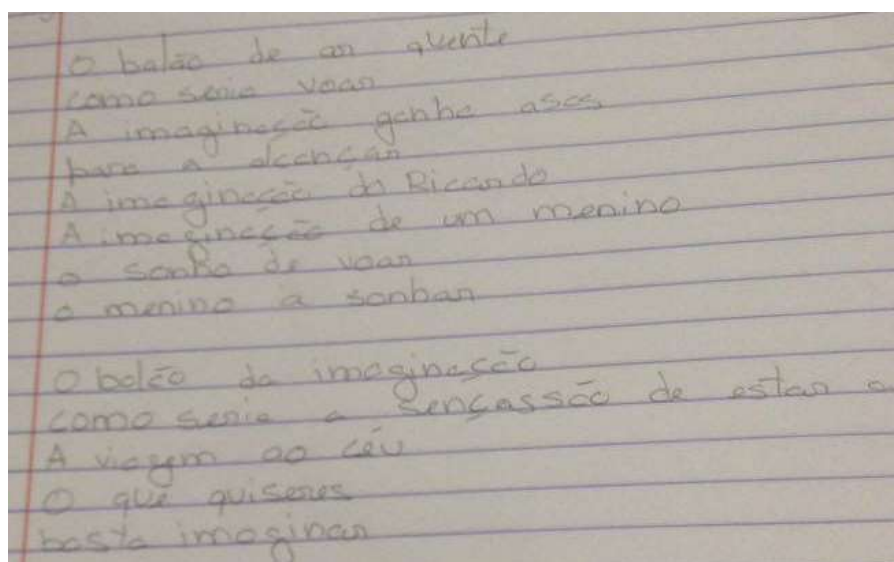 O balão de ar quente
como seria voar
A imaginação ganha asas
para a alcançar
A imaginação do Ricardo
A imaginação de um menino
o sonho de voar
o menino a sonhar
O balão da imaginação
como seria a sençassão de estar a
A viagem ao céu
O que quiseres
basta imaginar